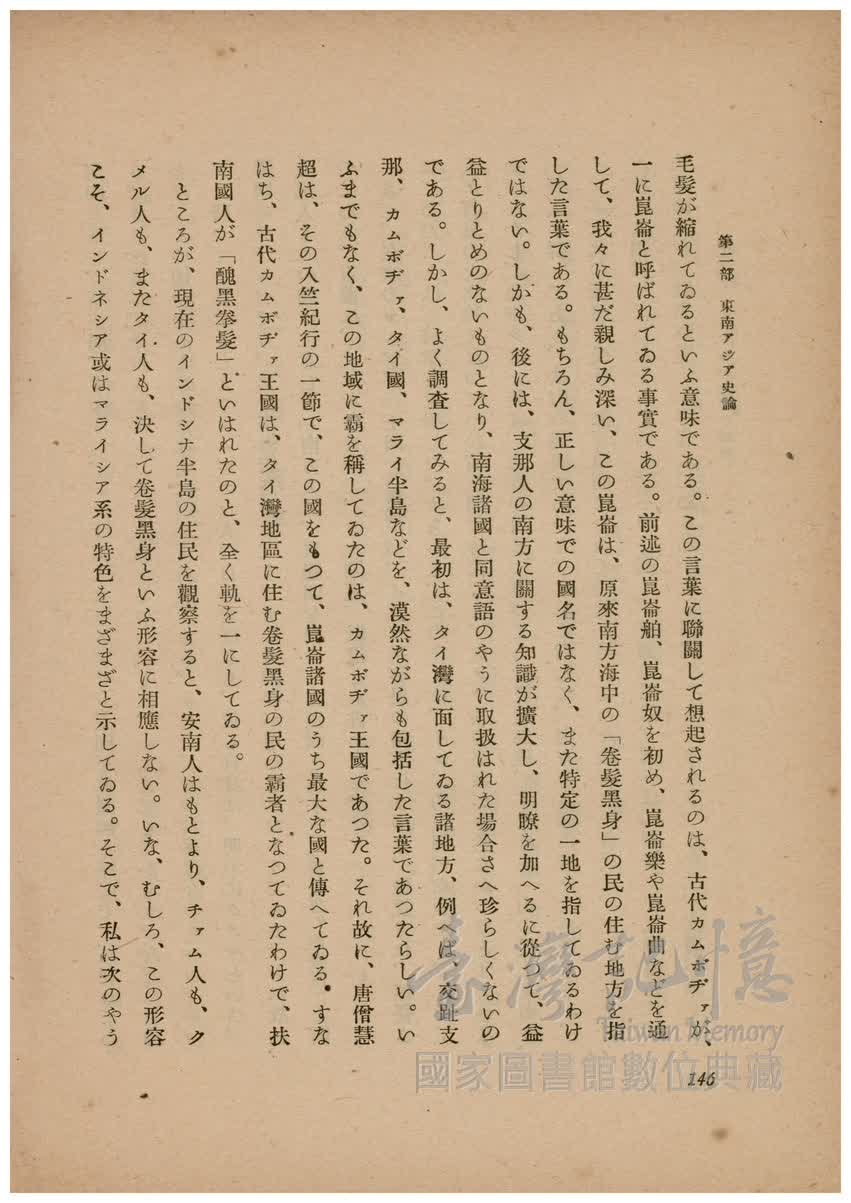 第二部　東南アジア史論
毛髮が縮れてゐるといふ意味である。この言葉に聯關して想起されるのは、古代カムボヂァが、
一に崑崙と呼ばれてゐる事實である。前述の崑崙舶、崑崙奴を初め、崑崙樂や崑崙曲などを通
して、我々に甚だ親しみ深い、この崑崙は、原來南方海中の「卷髮黑身」の民の住む地方を指
した言葉である。もちろん、正しい意味での國名ではなく、また特定の一地を指してゐるわけ
ではない。しかも、後には、支那人の南方に關する知識が擴大し、明瞭を加へるに從つて、益
益とりとめのないものとなり、南海諸國と同意語のやうに取扱はれた場合さへ珍らしくないの
である。しかし、よく調査してみると、最初は、タイ灣に面してゐる諸地方、例へば、交趾支
那、カムボヂァ、タイ國、マライ半島などを、漠然ながらも包括した言葉であつたらしい。い
ふまでもなく、この地域に霸を稱してゐたのは、カムボヂァ王國であつた。それ故に、唐僧慧
超は、その入竺紀行の一節で、この國をもつて、崑崙諸國のうち最大な國と傳へてゐる。すな
はち、古代カムボヂァ王國は、タイ灣地區に住む卷髮黑身の民の霸者となつてゐたわけで、扶
南國人が「醜黑拳髮」といはれたのと、全く軌を一にしてゐる。
ところが、現在のインドシナ半島の住民を觀察すると、安南人はもとより、チァム人も、ク
メル人も、またタイ人も、決して卷髮黑身といふ形容に相應しない。いな、むしろ、この形容
こそ、インドネシア或はマライシア系の特色をまざまざと示してゐる。そこで、私は次のやう
146
臺灣記憶
Taiwan Memory
國家圖書館數位典藏